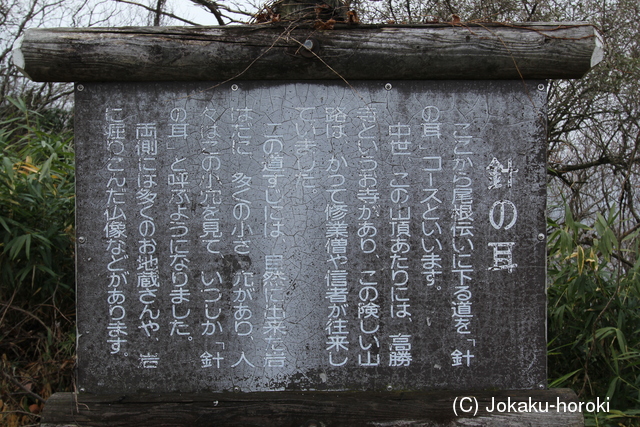 針の耳
ここから尾根伝いに下る道を「針
の耳」コースといいます。
中世、この山頂あたりには、高勝
寺というお寺があり、この険しい山
路は、かつて修業僧や信者が往来し
ていました。
この道すじには、自然に出来た岩
はだに、多くの小さな穴があり、人
々はこの小穴を見て、いつしか「針
の耳」と呼ぶようになりました。
両側には多くのお地蔵さんや、岩
に掘りこんだ仏像などがあります。
(C) Jokaku-horoki